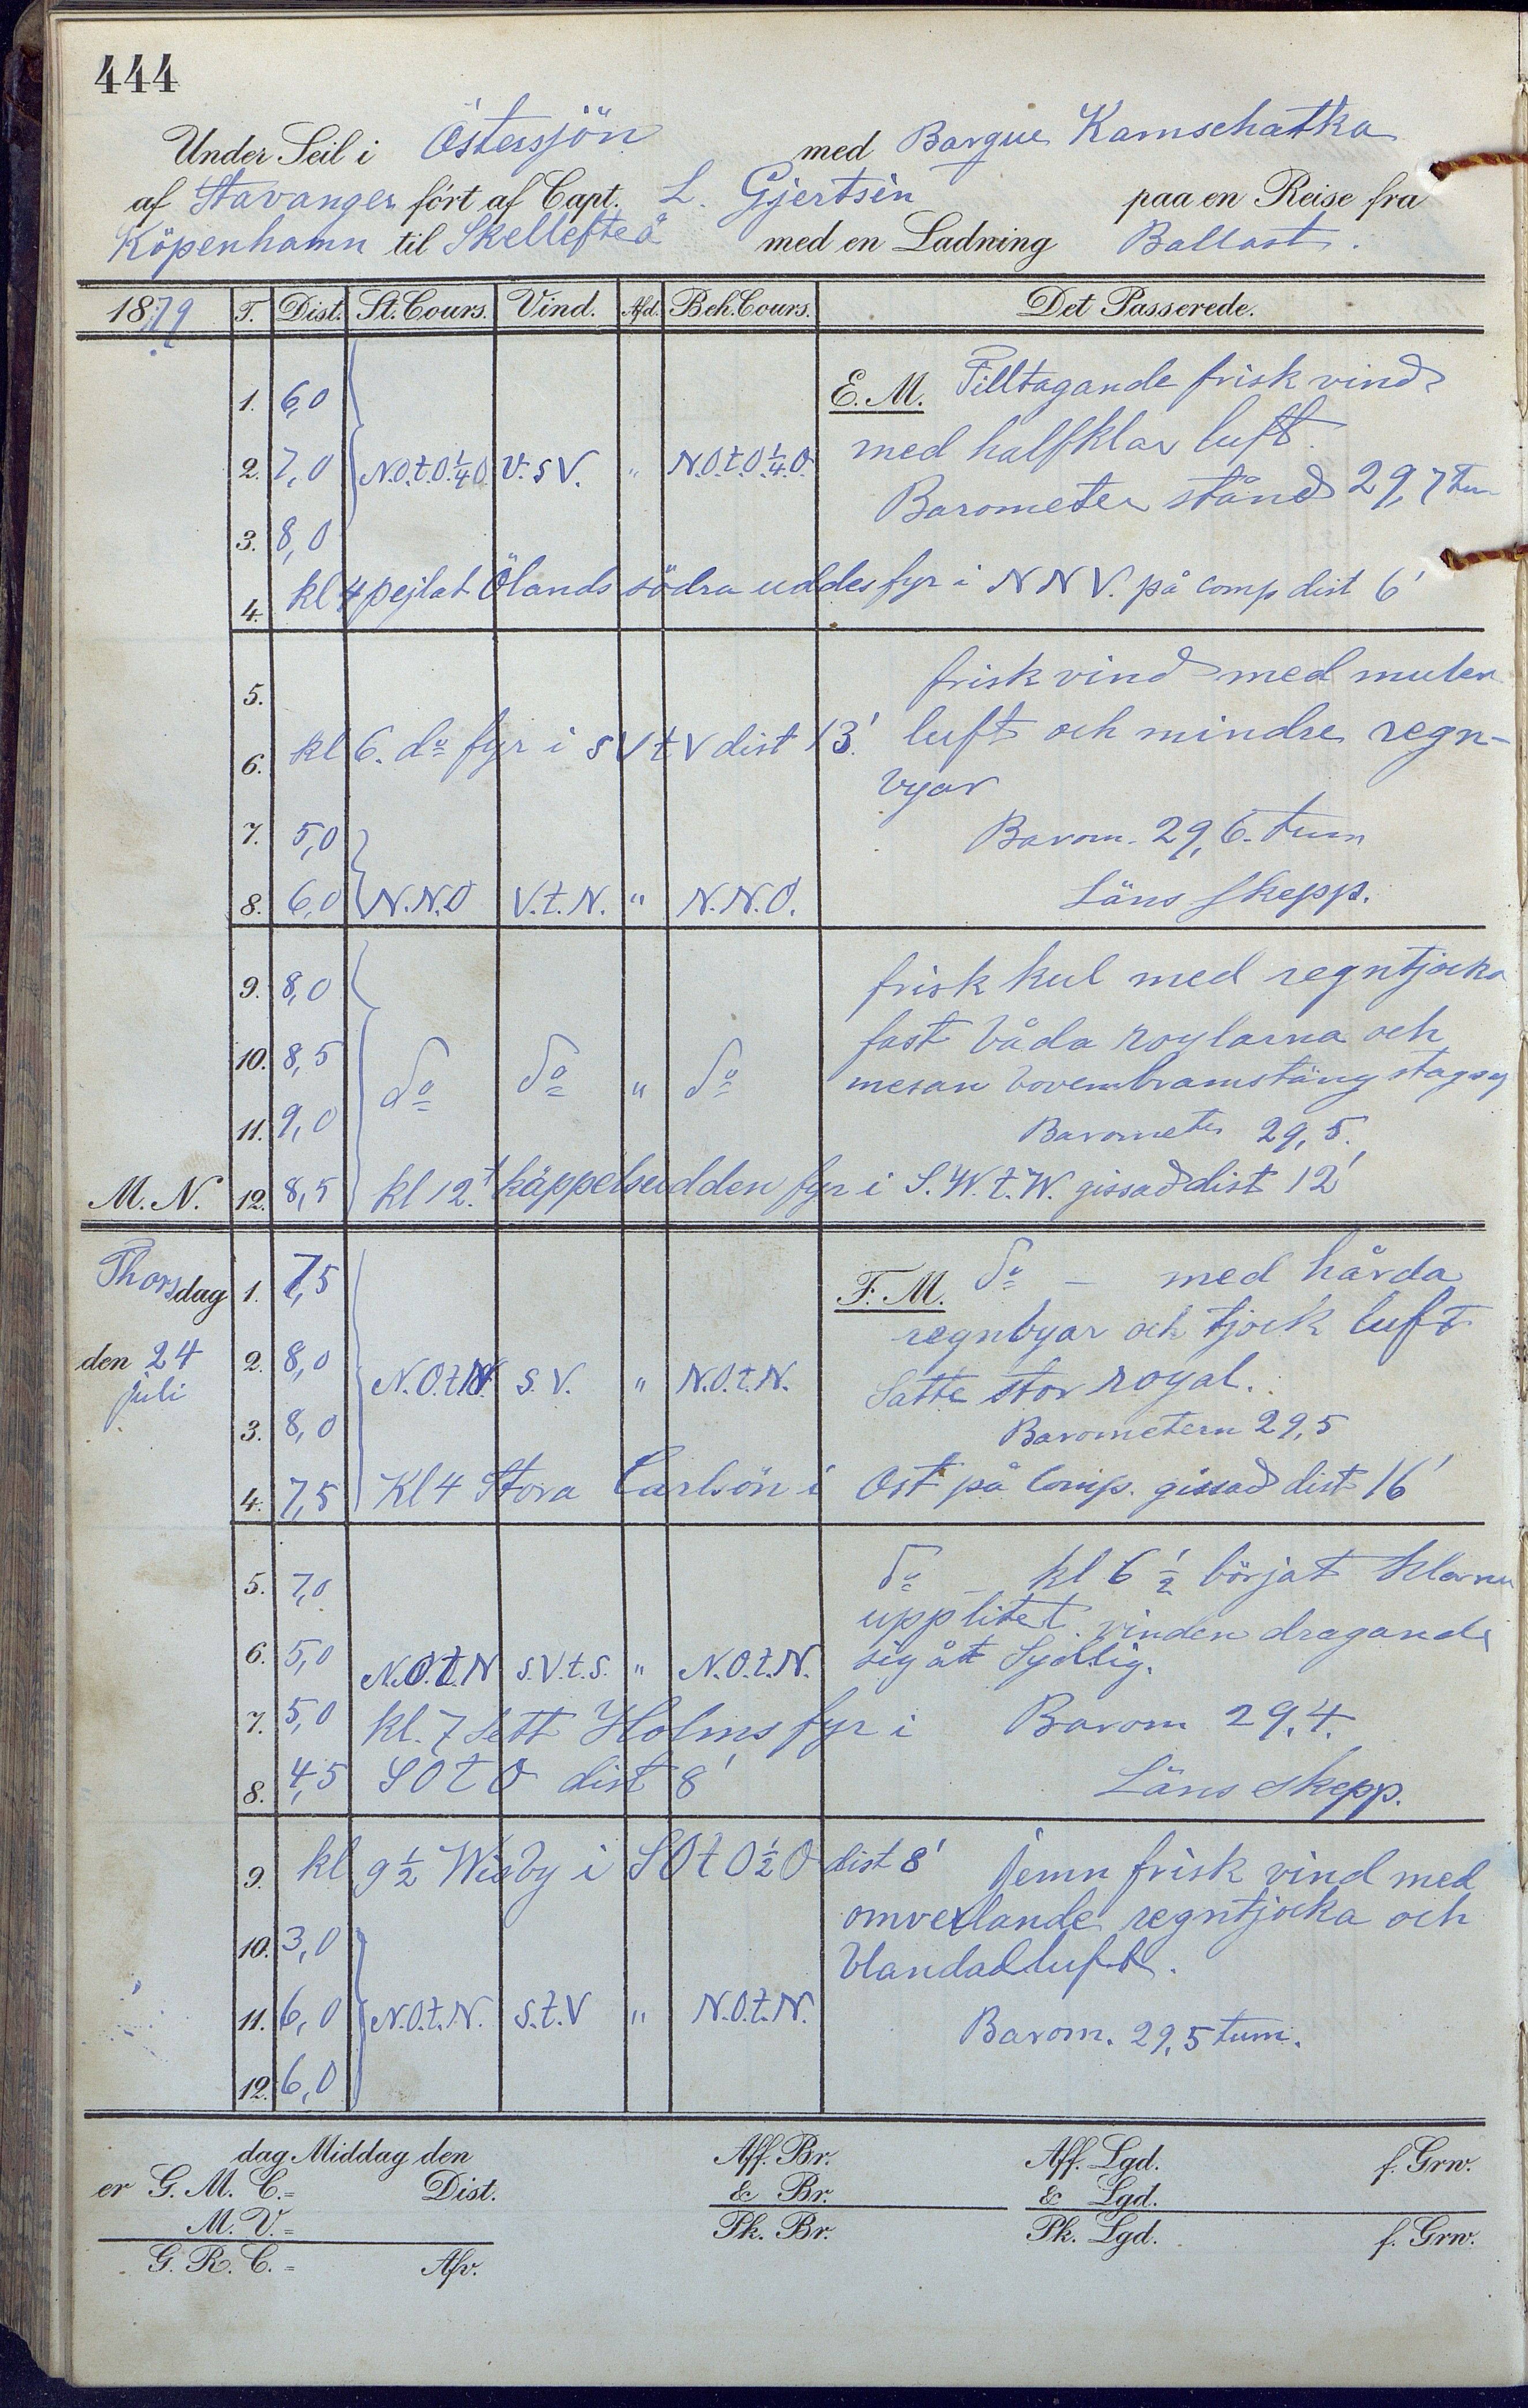 444
Under Seil i Östersjön med Barque Kamschatka
af Stavanger ført af Capt. L. Gjertsen paa en Reise fra
Köpenhamn til Skellefteå med en Ladning Ballast.
1879 T. Dist. St. Cours. Vind. Afd. Beh. Cours. Det Passerede.
1. 6,0 E. M. Tilltagande frisk vind
2. 7,0 N.O.t.O.¼O V.SV. " N.O.t.O.¼.O. med halfklar luft.
3. 8,0 Barometer stånd 29,7 tum
4. kl 4 pejlat Ölands södra uddes fyr i NNV. på comp dist 6'
5. frisk vind med mulen
6. kl 6. do fyr i SVtV dist 13'. luft och mindre regn-
byar
7. 5,0 Barom. 29,6. tum
8. 6,0 N.N.O V.t.N. " N.N.O. Läns skepp.
9. 8,0 frisk kul med regntjocka
10. 8,5 fast båda roylarna och
do do " do mesan bovenbramstäng stagseg
11. 9,0 Barometer 29,5.
M. N. 12. 8,5 kl 12. käppelsudden fyr i S.W.t.W. gissad dist 12'
Thorsdag 1. 7,5 F. M. do - med hårda
regnbyar och tjock luft
den 24 2. 8,0 N.O.t.N. S.V. " N.O.t.N. Satte stor royal.
juli
3. 8,0 Barometern 29,5
4. 7,5 Kl 4 Stora Carlsön i Ost på Comp. gissad dist 16'
5. 7,0 do - kl 6 ½ börjat klarna
upp litet. vinden dragande
6. 5,0 N.O.t.N S.V.t.S. " N.O.t.N. sig åt Sydlig.
7. 5,0 kl. 7 sett Holms fyr i Barom 29.4.
8. 4,5 SOtO dist 8' Läns skepp.
9. kl 9½ Wisby i SOtO½O dist 8' Jemn frisk vind med
omvexlande regntjocka och
10. 3,0 blandad luft.
11. 6,0 N.O.t.N. S.t.V " N.O.t.N. Barom. 29,5 tum.
12. 6,0
dag Middag den Aff. Br. Aff. Lgd. f. Grw.
er G. M. C. = Dist. & Br. & Lgd.
M. V. = Pk. Br. Pk. Lgd. f. Grw.
G. R. C. = Afv.